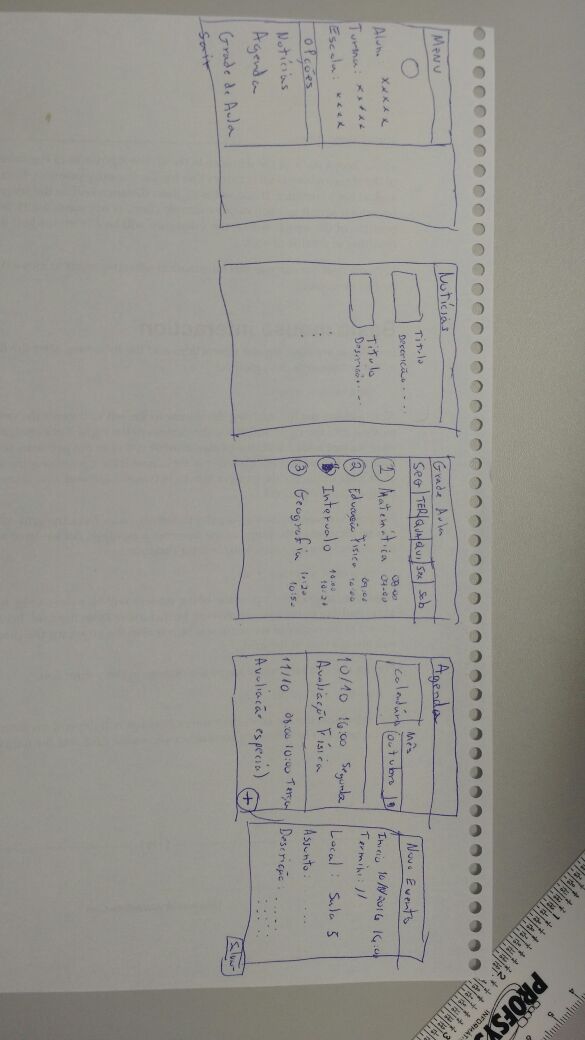 PROFSYS
MENU
Aluno xxxxx
Turma: xxxxx
Escola: xxxx
OPções
Notícias
Agenda
Grade de Aula
Sair
Notícias
Título
Descrição....
Título
Descrição...
Grade Aula
SEG TER QUA QUI Sex Sab
1 Matemática 08:00
2 Educação Física 09:00
10:00
Intervalo 10:00
10:20
3 Geografia 10:20
10:50
Agenda
Calendário
Mês
outubro
10/10 16:00 Segunda
Avaliação Física
11/10 08:00 10:00 Terça
Avaliacão especial
+
Novo Evento
Inicio 10/10/2016 16:00
Termino: //
Local: Sala 5
Assunto: ....
Descrição: ....
Salvar